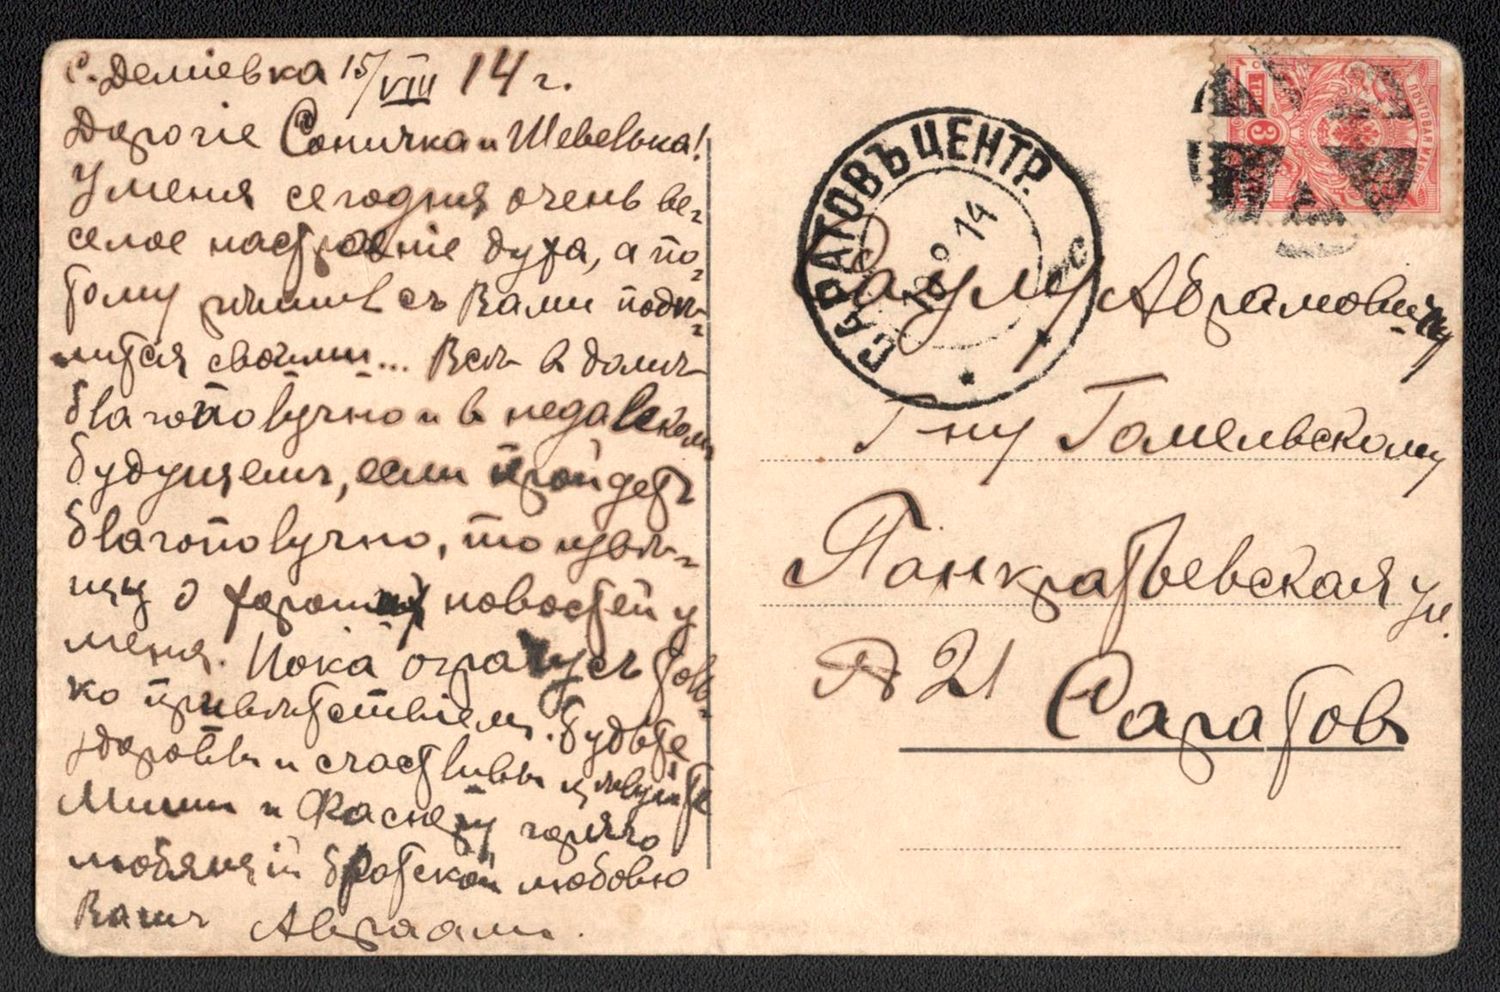 с. Деміевка 15/VIII 14 г.
Дорогіе Соничка и Шевелька!
У меня сегодня очень ве-
селое настроеніе духа, а по-
тому рѣшилъ съ Вами поды-
литься своими... Всѣ в домѣ
благополучно и в недалеком
будущемъ, если пройдетъ
благополучно, то извѣ-
щу о хороших новостей у
меня. Пока ограчусь толь-
ко привѣтствіем. Будьте
здоровы и счастливы цѣлуйте
Миши и горячо
любящій братской любовью
Вашъ Авраам.
САРАТОВЪ ЦЕНТР.
18 8 14
ПОЧТОВАЯ МАРКА
3
Саулу Абрамовичу
Г-ну Гомельскому
Панкратьевская ул.
Д 21
Саратовъ